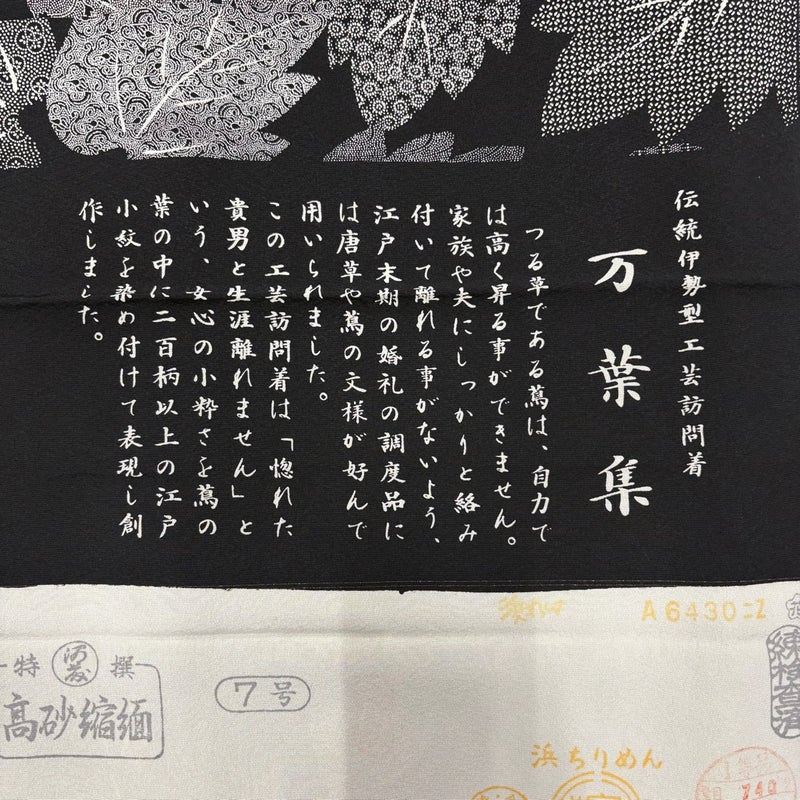 伝統伊勢型工芸訪問着
万葉集
つる草である蔦は、自力で
は高く昇る事ができません。
家族や夫にしっかりと絡み
付いて離れる事がないよう、
江戸末期の婚礼の調度品に
は唐草や蔦の文様が好んで
用いられました。
この工芸訪問着は「惚れた
貴男と生涯離れません」と
いう、女心の小粋さを蔦の
葉の中に二百柄以上の江戸
小紋を染め付けて表現し創
作しました。
A6430
特撰
高砂縮緬
7号
練検査済
浜ちりめん